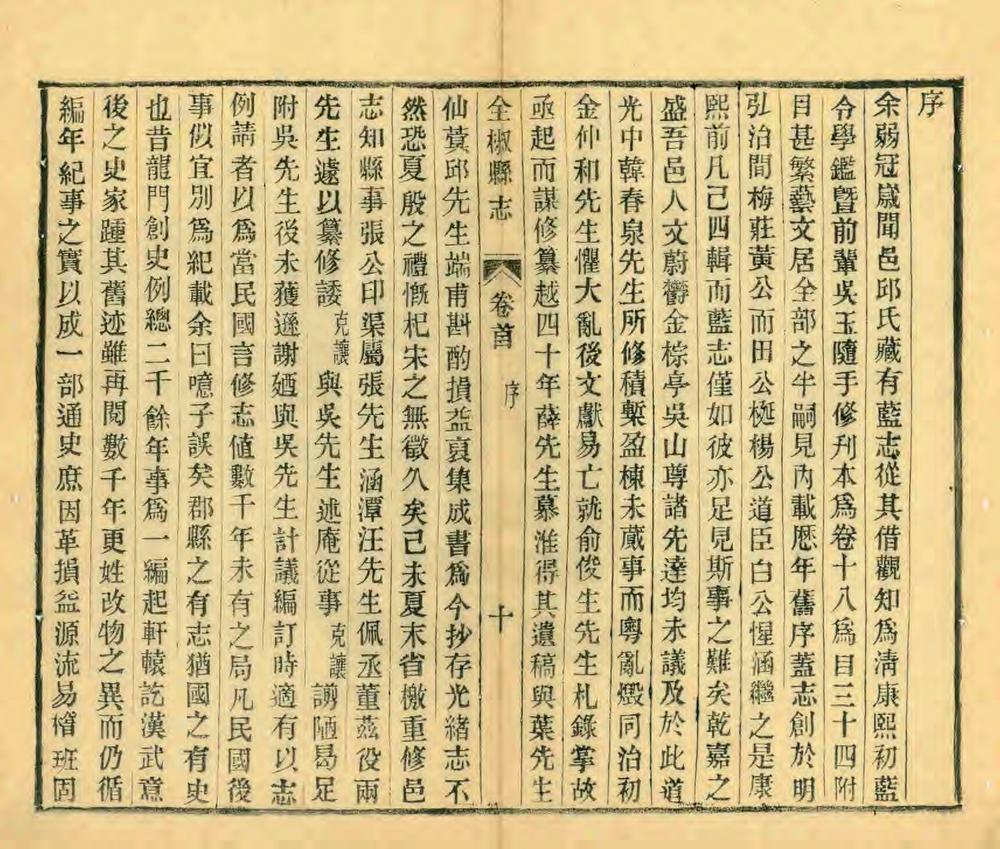 序
余弱冠歲聞邑邱氏藏有藍志從其借觀知爲淸康熙初藍
令學鑑曁前輩吳玉隨手修刊本爲卷十八爲目三十四附
目甚繁藝文居全部之半嗣見內載歷年舊序蓋志創於明
弘治間梅莊黃公而田公梴楊公道臣白公惺涵繼之是康
熙前凡已四輯而藍志僅如彼亦足見斯事之難矣乾嘉之
盛吾邑人文蔚鬱金棕亭吳山尊諸先達均未議及於此道
光中韓春泉先生所修積槧盈棟未蕆事而粵亂燬同治初
金仲和先生懼大亂後文獻易亡就俞俊生先生札錄掌故
亟起而謀修纂越四十年薛先生慕淮得其遺稿與葉先生
全椒縣志 卷首 序 十
仙蓂邱先生端甫斟酌損益裒集成書爲今抄存光緖志不
然恐夏殷之禮慨杞宋之無徵久矣己未夏末省檄重修邑
志知縣事張公印渠屬張先生涵潭汪先生佩丞董茲役兩
先生遽以纂修諉克讓與吳先生述庵從事克讓謭陋曷足
附吳先生後未獲遜謝廼與吳先生計議編訂時適有以志
例請者以爲當民國言修志値數千年未有之局凡民國後
事似宜別爲紀載余曰噫子誤矣郡縣之有志猶國之有史
也昔龍門創史例總二千餘年事爲一編起軒轅訖漢武意
後之史家踵其舊迹雖再閱數千年更姓改物之異而仍循
編年紀事之實以成一部通史庶因革損益源流易稽班固